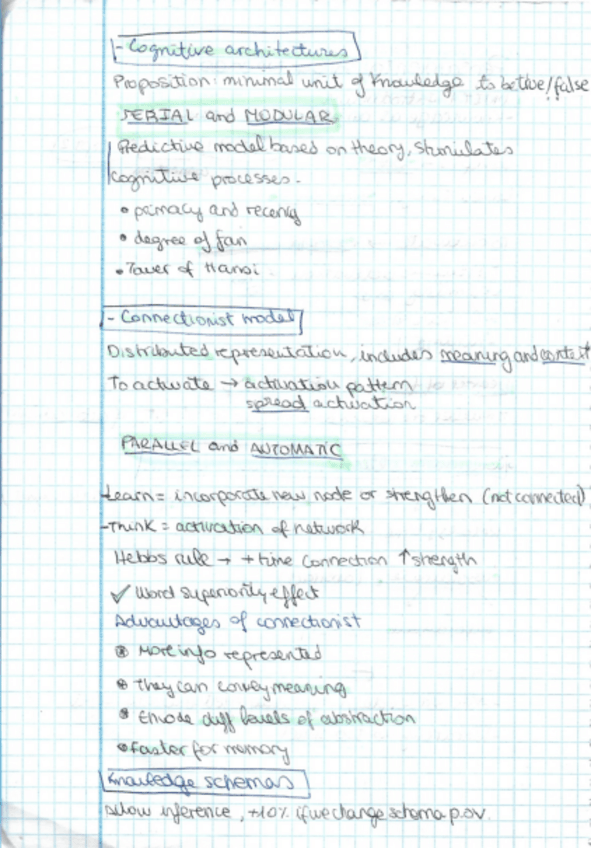 - Cognitive architectures
Proposition: minimal unit of knowledge to be true/false
SERIAL and MODULAR
Predictive model based on theory, stimulates
cognitive processes.
• primacy and recency
• degree of fan
• Tower of Hanoi
- Connectionist model
Distributed representation, includes meaning and context
To activate → activation pattern
spread activation
PARALLEL and AUTOMATIC
- Learn = incorporate new node or strengthen (not connected)
- Think = activation of network
Hebbs rule → + time connection ↑ strength
✓ Word superiority effect
Advantages of connectionist
• More info represented
• They can convey meaning
• Encode diff levels of abstraction
• Faster for memory
Knowledge schemas
Allow inference, +10% if we change schema p.ov.